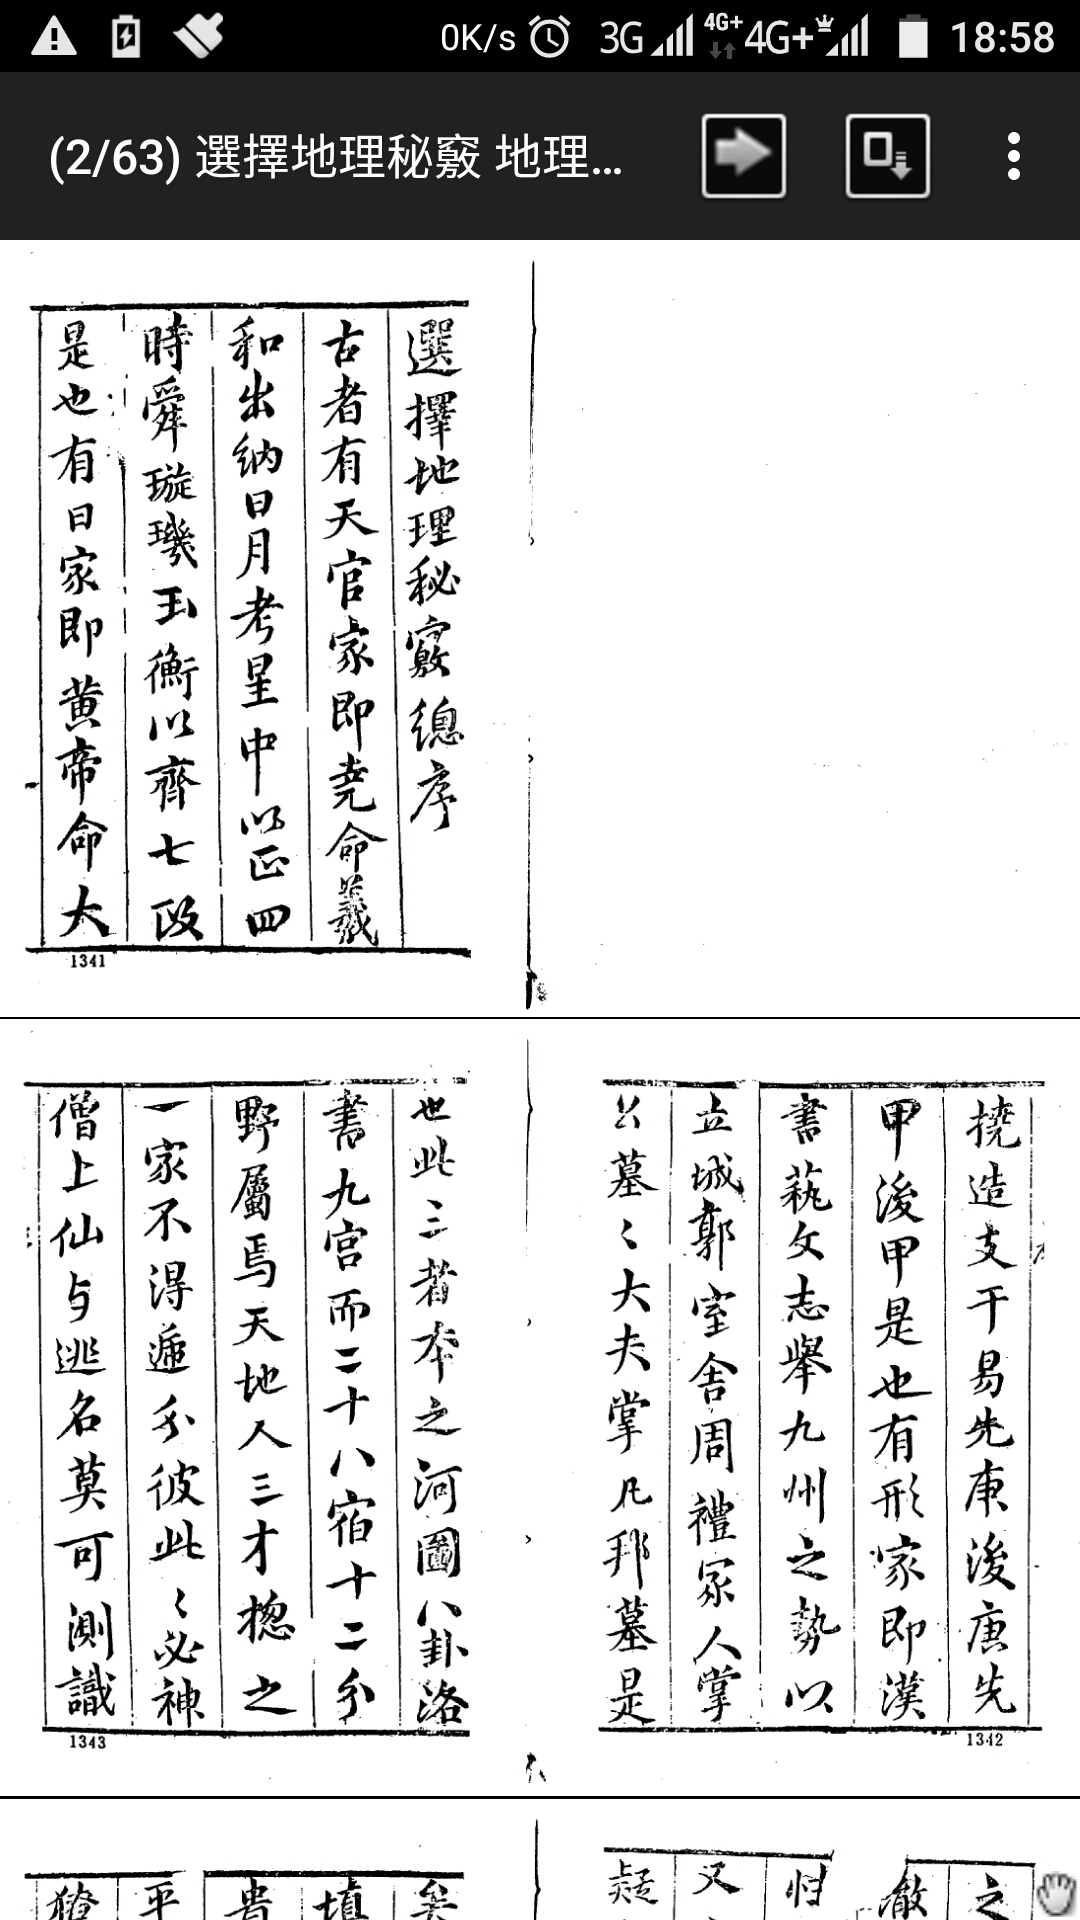 0K/s 3G 4G+ 4G+ 18:58
(2/63) 選擇地理秘竅 地理...
選擇地理秘竅總序
古者有天官家即堯命羲
和出納日月考星中以正四
時舜璇璣玉衡以齊七政
是也有日家即黃帝命大
1341
撓造支干易先庚後庚先
甲後甲是也有形家即漢
書藝文志舉九州之勢以
立城郭室舍周禮冢人掌
公墓〻大夫掌凡邦墓是
1342
也此三者本之河圖八卦洛
書九宮而二十八宿十二分
野屬焉天地人三才揔之
一家不得遍分彼此〻必神
僧上仙与逃名莫可測識
1343
之
徹
归
又
疑
矣
填
貴
平
獠